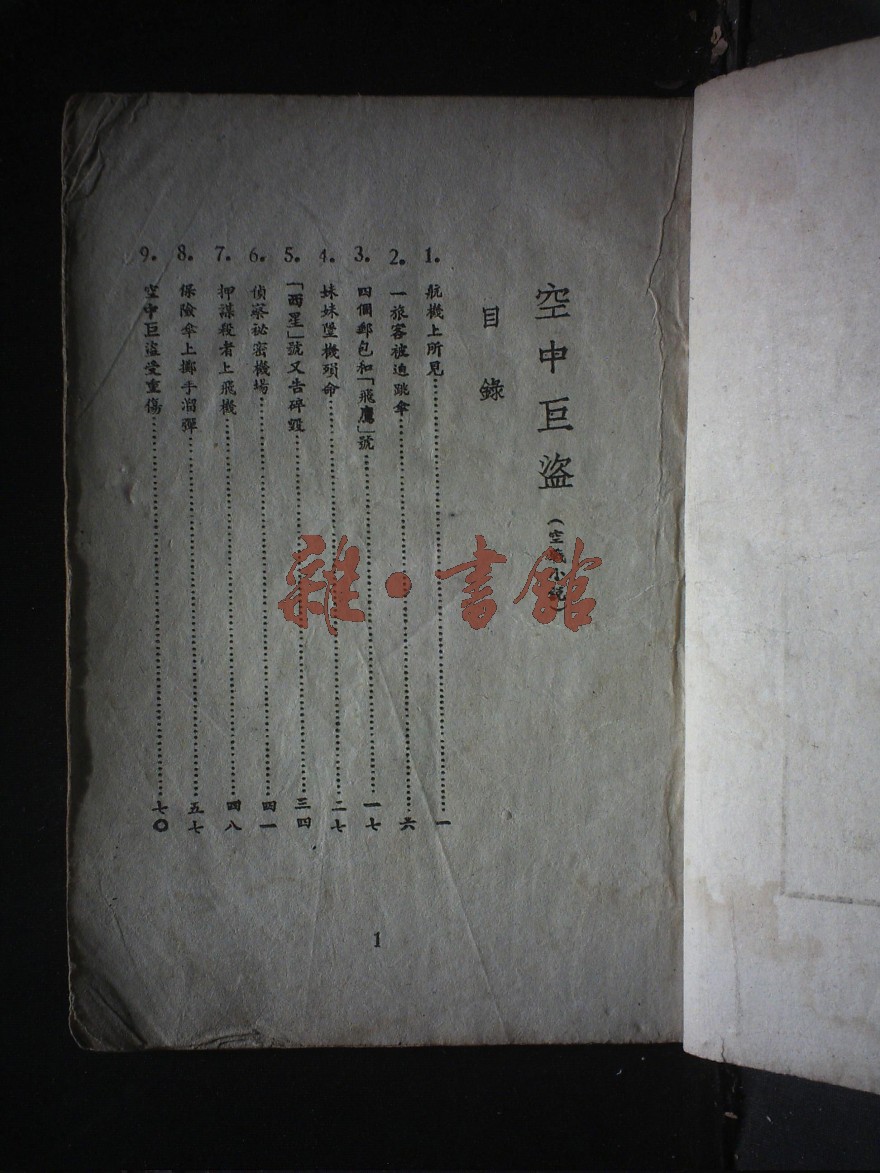 空中巨盜(空戰小說)
目錄
1. 航機上所見 一
2. 一旅客被迫跳傘 六
3. 四個郵包和「飛鷹」號 一七
4. 妹妹墮機殞命 二七
5. 「西星」號又告碎毀 三四
6. 偵察祕密機場 四一
7. 押謀殺者上飛機 四八
8. 保險傘上擲手溜彈 五七
9. 空中巨盜受重傷 七〇
1
雜·書館